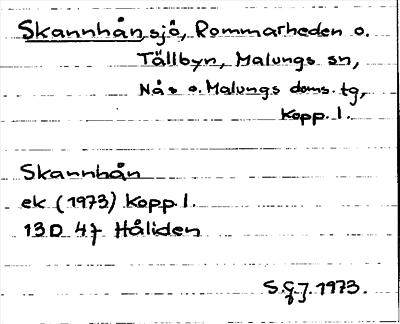 Skannhån, sjö, Rommarheden o.
Tällbyn, Malungs sn,
Nås o. Malungs doms. tg,
Kopp. l.
Skannhån
ek (1973) Kopp. l.
13D 4j Håliden
S.G.J. 1973.